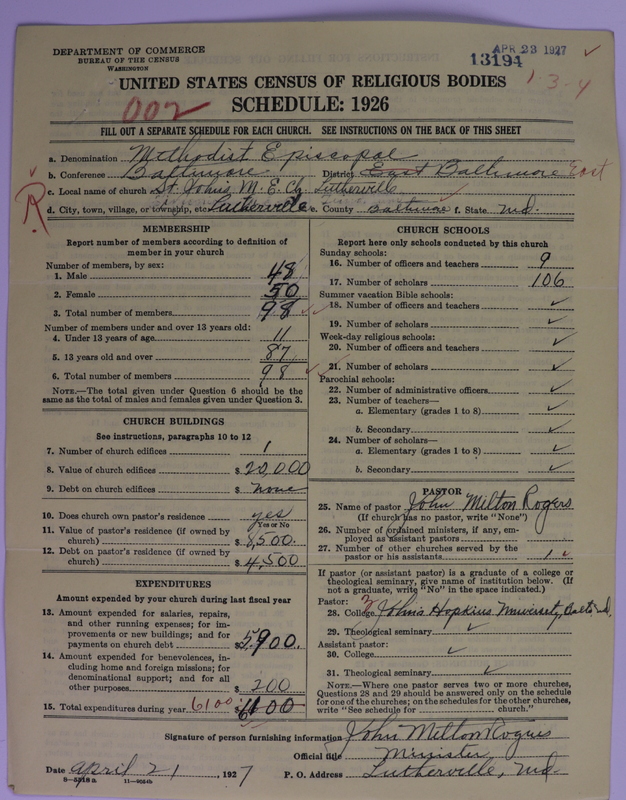 DEPARTMENT OF COMMERCE
BUREAU OF THE CENSUS
WASHINGTON
APR 23 1927
13194
1-3-4
UNITED STATES CENSUS OF RELIGIOUS BODIES
002
SCHEDULE: 1926
FILL OUT A SEPARATE SCHEDULE FOR EACH CHURCH. SEE INSTRUCTIONS ON THE BACK OF THIS SHEET
a. Denomination Methodist Episcopal
b. Conference Baltimore District East Baltimore East
c. Local name of church St. John's M. E. Ch. Lutherville
R
d. City, town, village, or township, etc. Lutherville e. County Baltimore f. State Md.
MEMBERSHIP
Report number of members according to definition of member in your church
Number of members, by sex:
1. Male 48
2. Female 50
3. Total number of members 98
Number of members under and over 13 years old:
4. Under 13 years of age 11
5. 13 years old and over 87
6. Total number of members 98
NOTE.—The total given under Question 6 should be the same as the total of males and females given under Question 3.
CHURCH BUILDINGS
See instructions, paragraphs 10 to 12
7. Number of church edifices 1
8. Value of church edifices $ 20,000
9. Debt on church edifices $ none
10. Does church own pastor's residence yes
Yes or No
11. Value of pastor's residence (if owned by church) $ 8,500.
12. Debt on pastor's residence (if owned by church) $ 4,500
EXPENDITURES
Amount expended by your church during last fiscal year
13. Amount expended for salaries, repairs, and other running expenses; for improvements or new buildings; and for payments on church debt $ 5,900.
14. Amount expended for benevolences, including home and foreign missions; for denominational support; and for all other purposes $ 200
15. Total expenditures during year 6100 $ 6100
CHURCH SCHOOLS
Report here only schools conducted by this church
Sunday schools:
16. Number of officers and teachers 9
17. Number of scholars 106
Summer vacation Bible schools:
18. Number of officers and teachers ✓
19. Number of scholars ✓
Week-day religious schools:
20. Number of officers and teachers ✓
21. Number of scholars ✓
Parochial schools:
22. Number of administrative officers ✓
23. Number of teachers—
a. Elementary (grades 1 to 8) ✓
b. Secondary ✓
24. Number of scholars—
a. Elementary (grades 1 to 8) ✓
b. Secondary ✓
PASTOR
25. Name of pastor John Milton Rogers
(If church has no pastor, write "None")
26. Number of ordained ministers, if any, employed as assistant pastors
27. Number of other churches served by the pastor or his assistants 1 ✓
If pastor (or assistant pastor) is a graduate of a college or theological seminary, give name of institution below. (If not a graduate, write "No" in the space indicated.)
Pastor:
28. College Johns Hopkins University, Balto, Md.
29. Theological seminary ✓
Assistant pastor:
30. College ✓
31. Theological seminary ✓
NOTE.—Where one pastor serves two or more churches, Questions 28 and 29 should be answered only on the schedule for one of the churches; on the schedules for the other churches, write "See schedule for church."
Signature of person furnishing information John Milton Rogers
Official title Minister
Date April 21, 1927 P. O. Address Lutherville, Md.
8—5518a 11—9054b